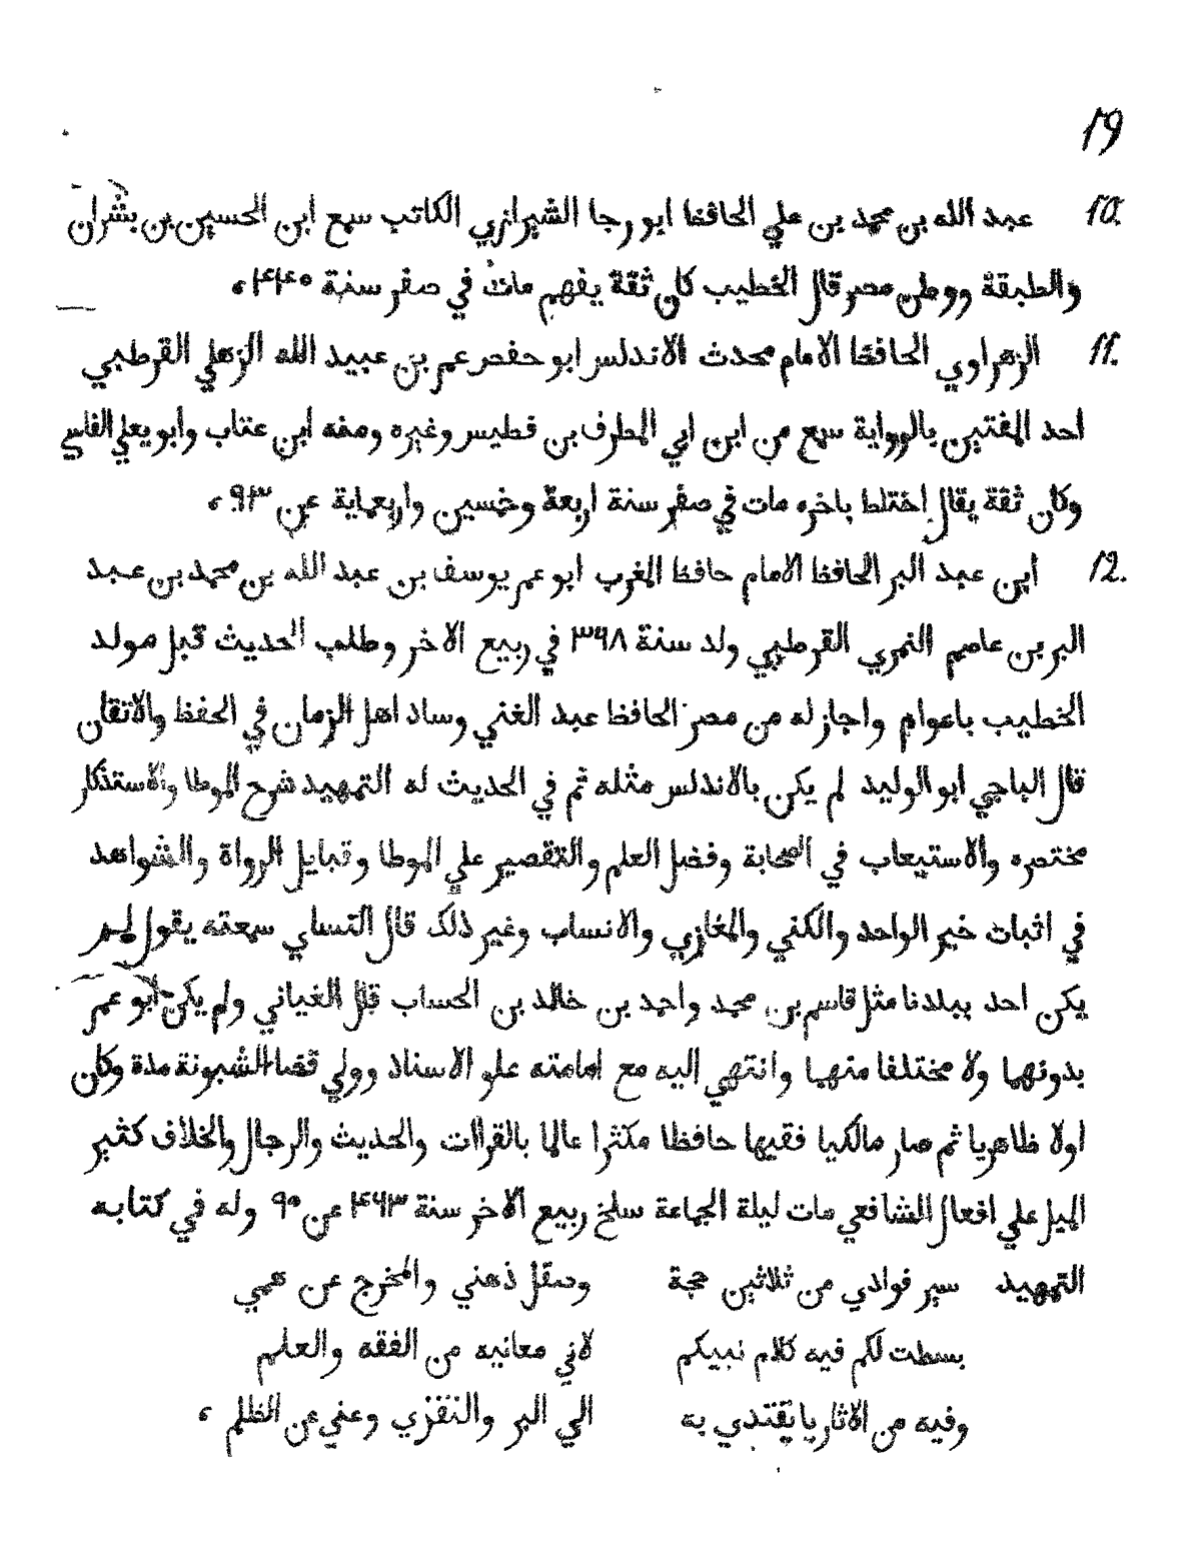 19
10. عبد الله بن محمد بن علي الحافظ ابو رجا الشيرازي الكاتب سمع ابن الحسين بن بشران
والطبقة ووطن مصر قال الخطيب كان ثقة يفهم مات في صفر سنة ۴۴۰،
11. الزهراوي الحافظ الامام محدث الاندلس ابو حفص عمر بن عبيد الله الزهلي القرطبي
احد المفتين بالرواية سمع من ابن ابي المطرف بن فطيس وغيره ومنه ابن عتاب وابو يعلي الفاسي
وكان ثقة يقال اختلط باخره مات في صفر سنة اربعة وخمسين واربعماية عن ۹۳،
12. ابن عبد البر الحافظ الامام حافظ المغرب ابو عمر يوسف بن عبد الله بن محمد بن عبد
البر بن عاصم النمري القرطبي ولد سنة ۳۶۸ في ربيع الاخر وطلب الحديث قبل مولد
الخطيب باعوام واجاز له من مصر الحافظ عبد الغني وساد اهل الزمان في الحفظ والاتقان
قال الباجي ابو الوليد لم يكن بالاندلس مثله ثم في الحديث له التمهيد شرح الموطا والاستذكار
مختصره والاستيعاب في الصحابة وفضل العلم والتقصير علي الموطا وقبايل الرواة والشواهد
في اثبات خبر الواحد والكني والمغازي والانساب وغير ذلك قال النساي سمعته يقول لم
يكن احد ببلدنا مثل قاسم بن محمد واحمد بن خالد بن الحساب قال الغياني ولم يكن ابو عمر
بدونهما ولا مختلفا منهما وانتهي اليه مع امامته علو الاسناد وولي قضا الشبونة مدة وكان
اولا ظاهريا ثم صار مالكيا فقيها حافظا مكثرا عالما بالقراات والحديث والرجال والخلاف كثير
الميل علي افعال الشافعي مات ليلة الجماعة سلخ ربيع الاخر سنة ۴۶۳ عن ۹۵ وله في كتابه
التمهيد سير فوادي من ثلاثين حجة وصقل ذهني والمخرج عن همي
بسطت لكم فيه كلام نبيكم لاني معانيه من الفقه والعلم
وفيه من الاثار يا يقتدي به الي البر والنقزي وعني عن الظلم،